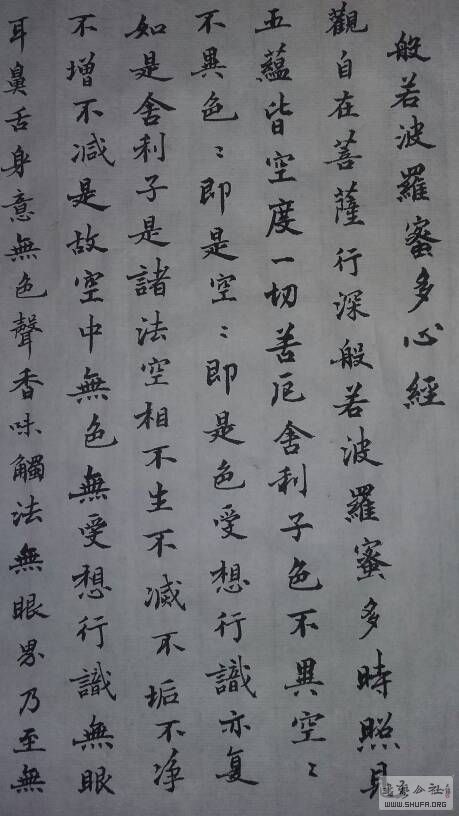 般若波羅蜜多心經
觀自在菩薩行深般若波羅蜜多時照見
五蘊皆空度一切苦厄舍利子色不異空〻
不異色〻即是空〻即是色受想行識亦复
如是舍利子是諸法空相不生不滅不垢不净
不增不减是故空中無色無受想行識無眼
耳鼻舌身意無色聲香味觸法無眼界乃至無
公社
WWW.SHUFA.ORG